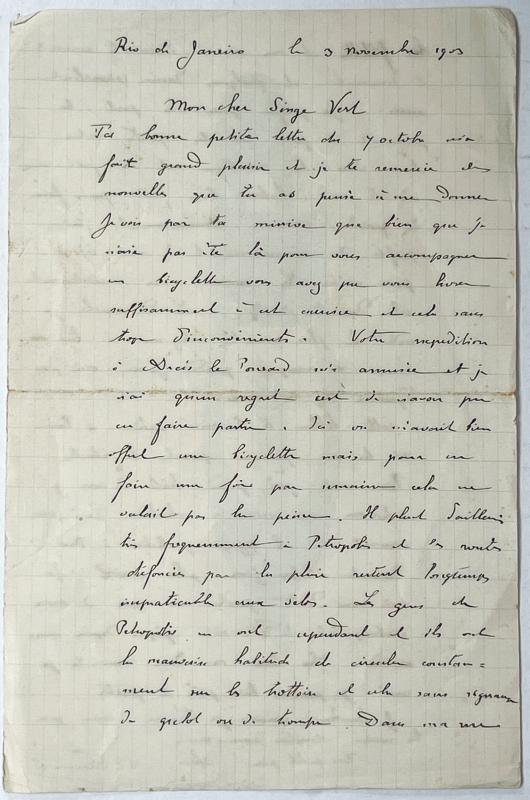 Rio de Janeiro le 3 novembre 1903
Mon cher Singe Vert
Ta bonne petite lettre du 7 octobre m'a
fait grand plaisir et je te remercie des
nouvelles que tu as pensé à me donner
Je vois par ta missive que bien que je
n'aie pas été là pour vous accompagner
en bicyclette vous avez pu vous livrer
suffisamment à cet exercice et cela sans
trop d'inconvénients. Votre expédition
à le m'a amusée et je
n'ai qu'un regret c'est de n'avoir pu
en faire partie. Ici on m'avait bien
offert une bicyclette mais pour en
faire une fois par semaine cela ne
valait pas la peine. Il pleut d'ailleurs
très fréquemment à Petropolis et les routes
défoncées par la pluie restent longtemps
impraticables aux vélos. Les gens de
Petropolis en ont cependant et ils ont
la mauvaise habitude de circuler constam=
ment sur les trottoirs et cela sans
de grelot ou de trompe. Dans ma rue